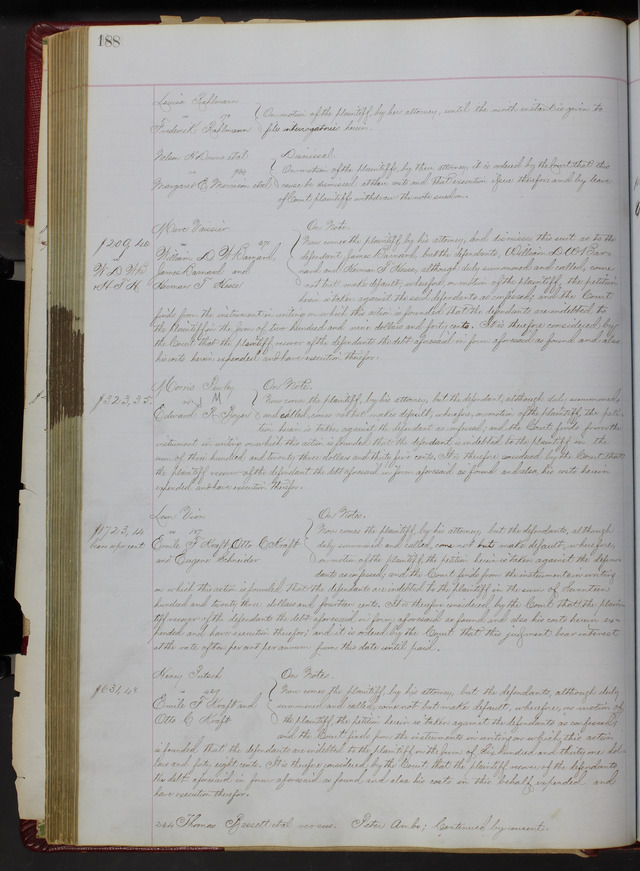 188
Louisa Rahlmann
vs 170 } On motion of the plaintiff, by her attorney, until the ninth instant is given to
Frederick Rahlmann file interrogatories herein.
Nelson et al Dismissed.
vs } On motion of the plaintiffs, by their attorney, it is ordered by the Court that this
Margaret E. Morrison et al cause be dismissed at their cost and that execution issue therefor, and by leave
of Court plaintiffs withdraw the note sued on.
On Note.
$209.40 vs } Now comes the plaintiff, by his attorney, and dismisses this suit as to the
William D. W. Barnard, defendant James Barnard, but the defendants, William D. W. Bar-
W. D. W. B. James Barnard and nard and Herman T. Hesse, although duly summoned and called, come
& H. T. H. Herman T. Hesse not but make default, wherefore, on motion of the plaintiff, the petition
herein is taken against the said defendants as confessed; and the Court
finds from the instrument in writing on which this action is founded that the defendants are indebted to
the Plaintiff in the sum of two hundred and nine dollars and forty cents. It is therefore considered by
the Court that the plaintiff recover of the defendants the debt aforesaid in form aforesaid as found and also
his costs herein expended and have execution therefor.
Morris On Note.
$323.35. vs } Now comes the plaintiff, by his attorney, but the defendant, although duly summoned
Edward R. and called, comes not but makes default, wherefore, on motion of the plaintiff, the peti-
tion herein is taken against the defendant as confessed; and the Court finds from the
instrument in writing on which this action is founded that the defendant is indebted to the plaintiff in the
sum of three hundred and twenty three dollars and thirty five cents. It is therefore considered by the Court that
the plaintiff recover of the defendant the debt aforesaid in form aforesaid as found and also his costs herein
expended and have execution therefor.
Leon On Notes.
$723.14 vs } Now comes the plaintiff, by his attorney, but the defendants, although
ten per cent Emile F. Kraft, Otto C. Kraft duly summoned and called, come not but make default, wherefore,
and Eugene Schneider on motion of the plaintiff, the petition herein is taken against the defen-
dants as confessed; and the Court finds from the instruments in writing
on which this action is founded that the defendants are indebted to the plaintiff in the sum of seventeen
hundred and twenty three dollars and fourteen cents. It is therefore considered by the Court that the plain-
tiff recover of the defendants the debt aforesaid in form aforesaid as found and also his costs herein ex-
pended and have execution therefor; and it is ordered by the Court that this judgment bear interest
at the rate of ten per cent per annum from this date until paid.
Henry On Notes.
$631.48 vs } Now comes the plaintiff, by his attorney, but the defendants, although duly
Emile F. Kraft and summoned and called, come not but make default, wherefore, on motion of
Otto C. Kraft the plaintiff, the petition herein is taken against the defendants as confessed;
and the Court finds from the instruments in writing on which this action
is founded that the defendants are indebted to the plaintiff in the sum of Six hundred and thirty one dol-
lars and forty eight cents. It is therefore considered by the Court that the plaintiff recover of the defendants
the debt aforesaid in form aforesaid as found and also his costs in this behalf expended and
have execution therefor.
Thomas Bassett et al versus Peter Ambs; Continued by consent.